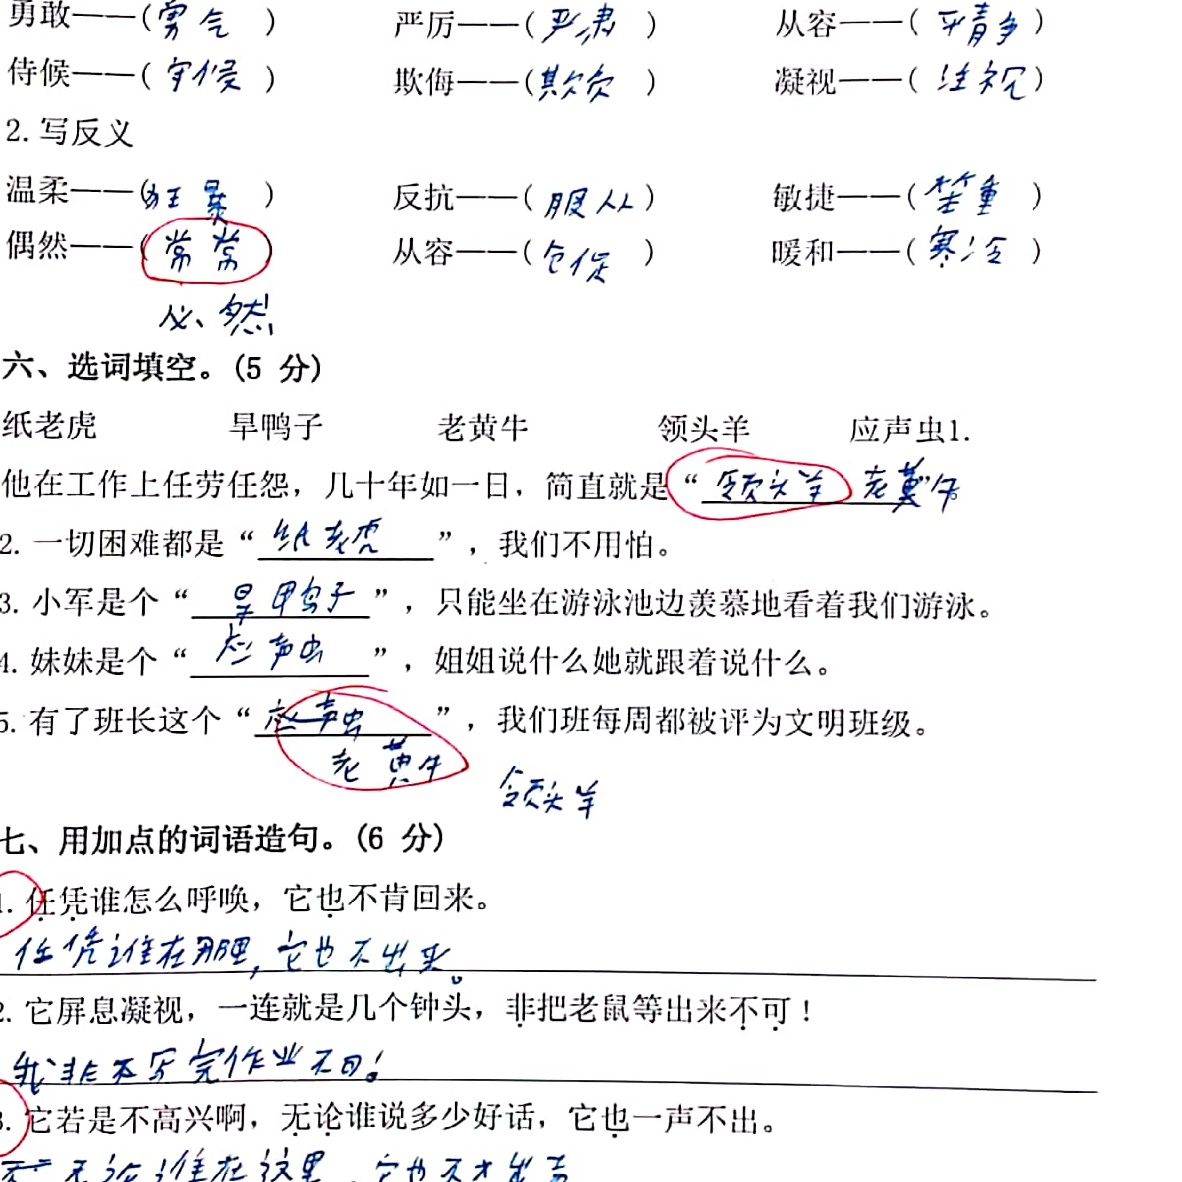 勇敢——(勇气) 严厉——(严肃) 从容——(平青多)
侍候——(守候) 欺侮——(欺负) 凝视——(注视)
2. 写反义
温柔——(狂暴) 反抗——(服从) 敏捷——(笨重)
偶然——(常常) 从容——(仓促) 暖和——(寒冷)
必然
六、选词填空。(5 分)
纸老虎 旱鸭子 老黄牛 领头羊 应声虫1.
他在工作上任劳任怨，几十年如一日，简直就是“领头羊”老黄牛。
2. 一切困难都是“纸老虎”，我们不用怕。
3. 小军是个“旱鸭子”，只能坐在游泳池边羡慕地看着我们游泳。
4. 妹妹是个“应声虫”，姐姐说什么她就跟着说什么。
5. 有了班长这个“应声虫”，我们班每周都被评为文明班级。
老黄牛
领头羊
七、用加点的词语造句。(6 分)
1. 任凭谁怎么呼唤，它也不肯回来。
任凭谁在那里，它也不出来。
2. 它屏息凝视，一连就是几个钟头，非把老鼠等出来不可！
我非不写完作业不可！
3. 它若是不高兴啊，无论谁说多少好话，它也一声不出。
无论谁在这里，它也不才出声